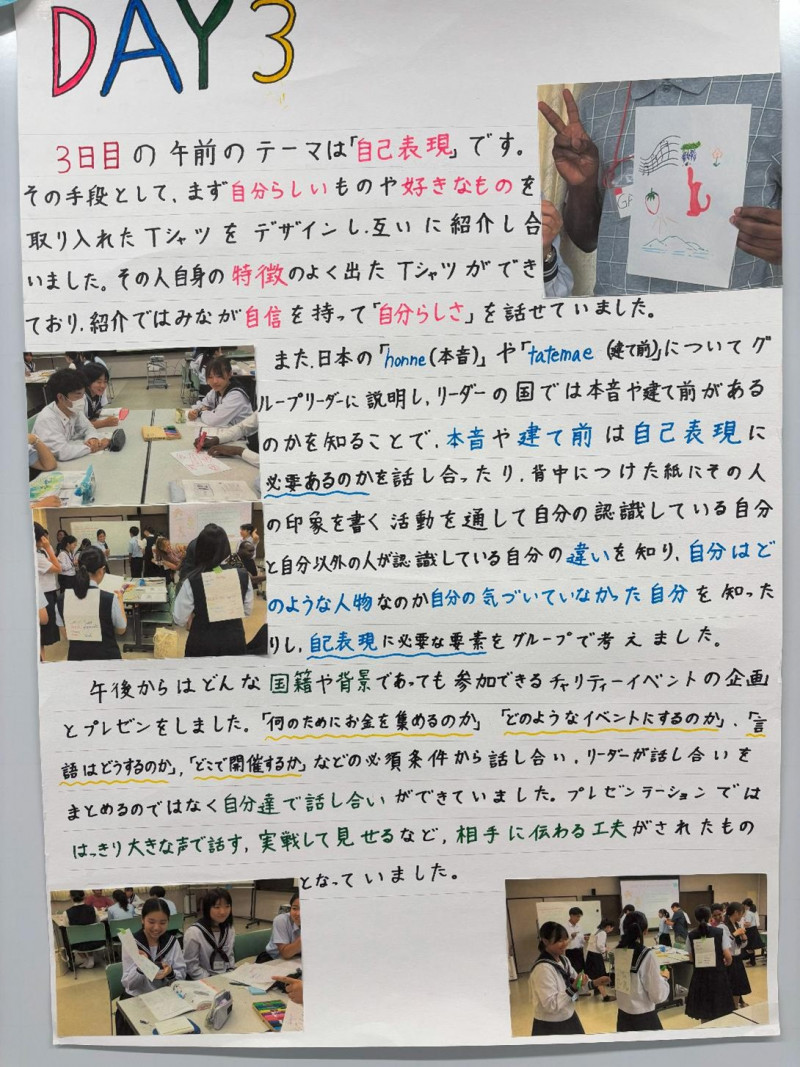 DAY 3
3日目の午前のテーマは「自己表現」です。
その手段として、まず自分らしいものや好きなものを
取り入れたTシャツをデザインし、互いに紹介し合
いました。その人自身の特徴のよく出たTシャツができ
ており、紹介ではみなが自信を持って「自分らしさ」を話せていました。
また、日本の「honne(本音)」や「tatemae (建て前)」についてグ
ループリーダーに説明し、リーダーの国では本音や建て前がある
のかを知ることで、本音や建て前は自己表現に
必要あるのかを話し合ったり、背中につけた紙にその人
の印象を書く活動を通して自分の認識している自分
と自分以外の人が認識している自分の違いを知り、自分はど
のような人物なのか自分の気づいていなかった自分を知った
りし、自己表現に必要な要素をグループで考えました。
午後からはどんな国籍や背景であっても参加できるチャリティーイベントの企画
とプレゼンをしました。「何のためにお金を集めるのか」「どのようなイベントにするのか」、「言
語はどうするのか」,「どこで開催するか」などの必須条件から話し合い、リーダーが話し合いを
まとめるのではなく自分達で話し合いができていました。プレゼンテーションでは
はっきり大きな声で話す,実戦して見せるなど,相手に伝わる工夫がされたもの
となっていました。